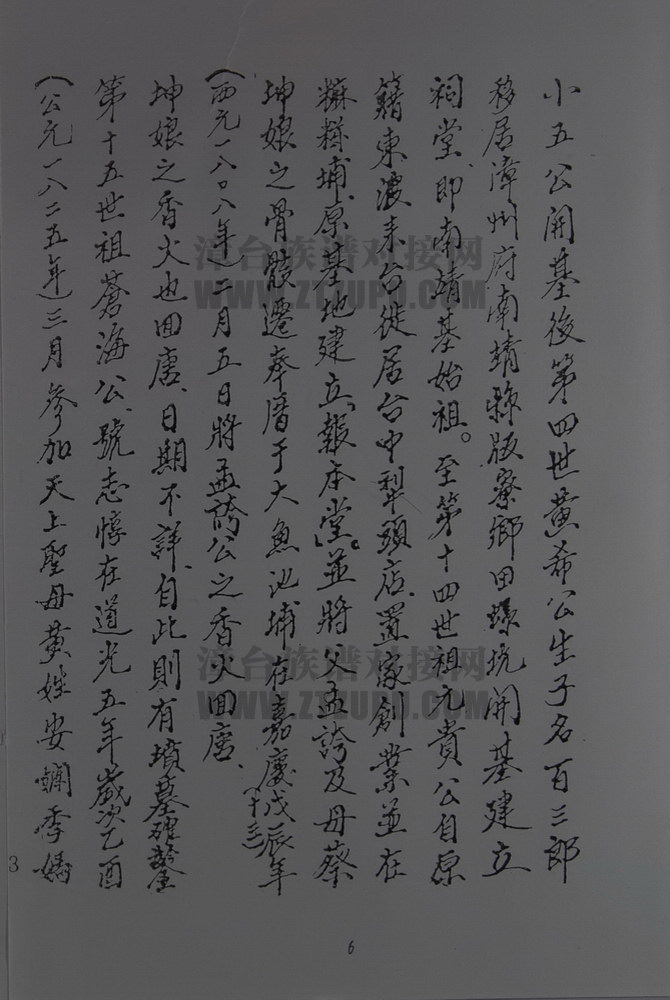 小五公開基後第四世黃希公生子名百三郎
移居漳州府南靖縣版寮鄉田螺坑開基建立
祠堂、即南靖基始祖。至第十四世祖元貴公自原
籍東渡來台徙居台中犁頭店、置家創業並在
糠榔埔、原基地建立「報本堂」。並將父孟誇及母蔡
坤娘之骨骸遷奉厝于大魚池埔在嘉慶戊辰年十三
（西元一八〇八年）二月五日將孟誇公之香火回唐、
坤娘之香火也回唐、日期不詳、自此則有墳墓確鑿
第十五世祖蒼海公、號志惇在道光五年歲次乙酉
（公元一八二五年）三月參加天上聖母黃姓安 季媽
漳台族谱对接网
WWW.ZTZUPU.COM
漳台族谱对接网
WWW.ZTZUPU.COM
3
6